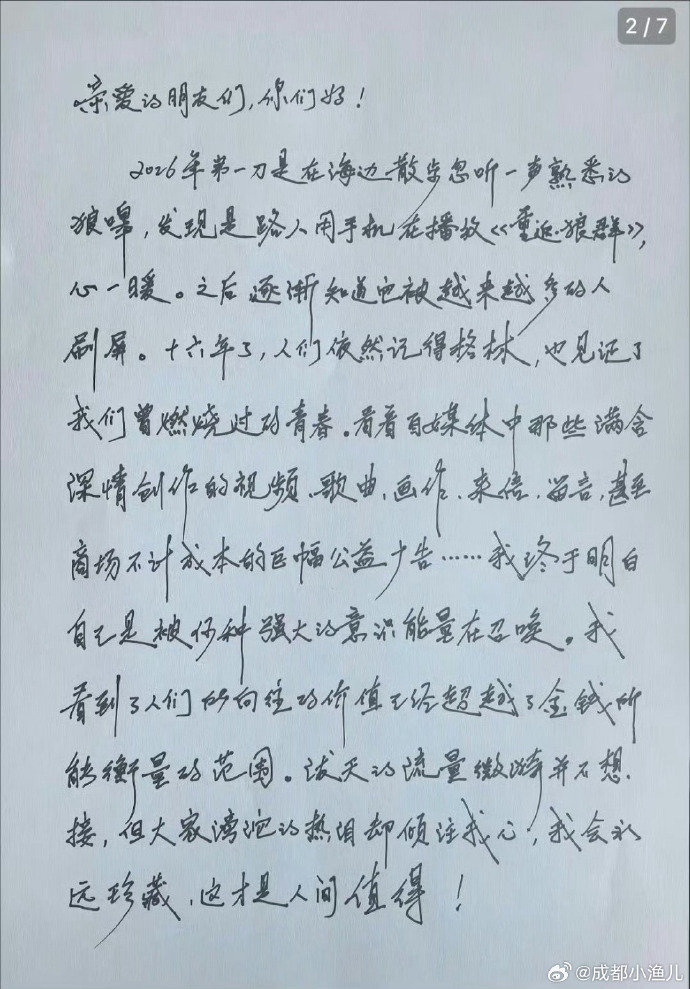 2/7
亲爱的朋友们，你们好！
2026年第一刀是在海边散步忽听一声熟悉的
狼嗥，发现是路人用手机在播放《重返·狼群》，
心一暖。之后逐渐知道它被越来越多的人
刷屏。十六年了，人们依然记得格林，也见证了
我们曾燃烧过的青春。看着自媒体中那些满含
深情创作的视频、歌曲、画作、来信、留言，甚至
商场不计成本的巨幅公益广告……我终于明白
自己是被何种强大的意识能量在召唤。我
看到了人们所向往的价值已经超越了金钱所
能衡量的范围。泼天的流量微漪并不想
接，但大家滂沱的热泪却倾注我心，我会永
远珍藏，这才是人间值得！
@成都小渔儿